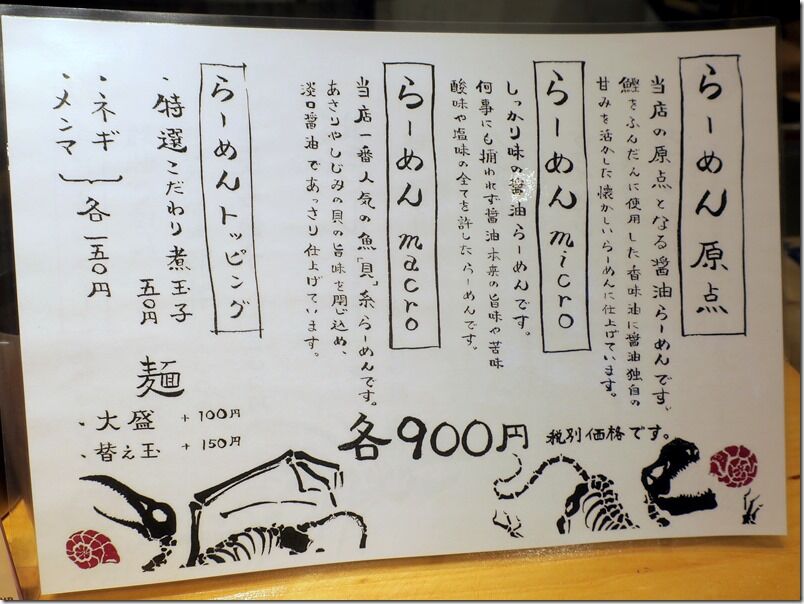 らーめん 原点
当店の原点となる醤油らーめんです。
鰹をふんだんに使用した香味油に醤油独自の
甘みを活かした懐かしいらーめんに仕上げています。
らーめん micro
しっかり味の醤油らーめんです。
何事にも捕われず醤油本来の旨味や苦味
酸味や塩味の全てを許したらーめんです。
らーめん macro
当店一番人気の魚「貝」系らーめんです。
あさりやしじみの貝の旨味を閉じ込め、
淡口醤油であっさり仕上げています。
らーめんトッピング
・特選こだわり煮玉子
五〇円
・ネギ
・メンマ
各一五〇円
麺
・大盛 +100円
・替え玉 +150円
各900円 税別価格です。